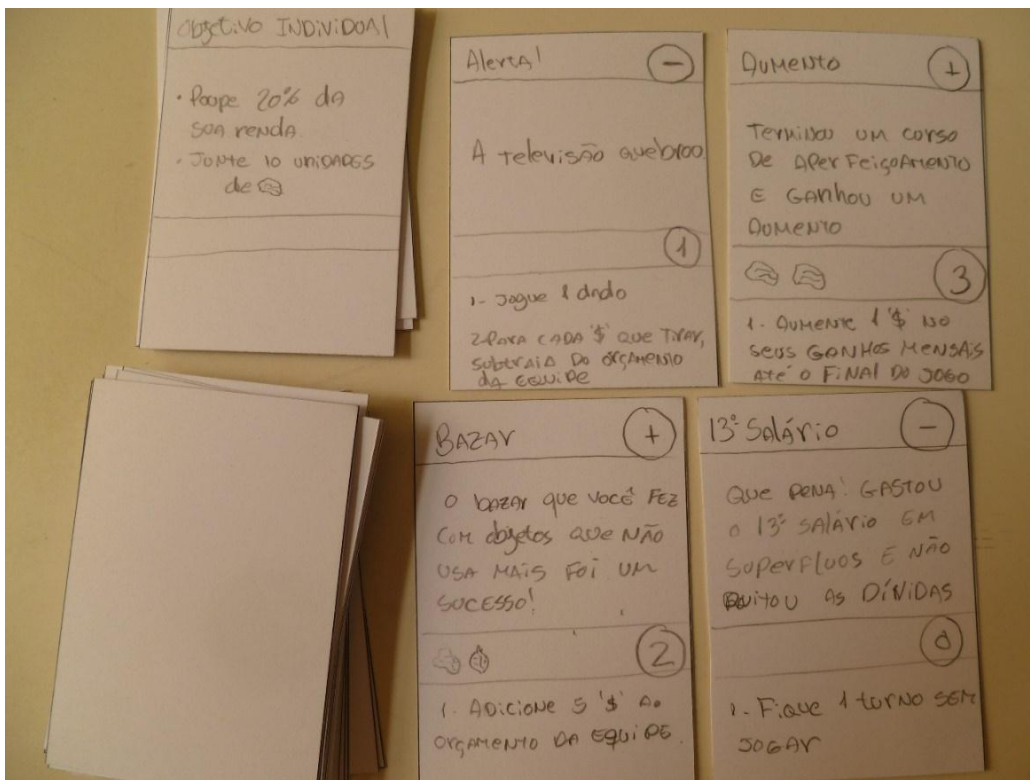 Objetivo INDIVIDUAL
• Poupe 20% da
sua renda
• Junte 10 unidades
de
Alerta!
−
A televisão quebrou
1
1- Jogue 1 dado
2- Para cada '$' que tirar,
subtraia do orçamento
da equipe
Aumento
+
Terminou um curso
de aperfeiçoamento
e ganhou um
aumento
3
1. Aumente 1 '$' no
seus ganhos mensais
até o final do jogo
Bazar
+
O bazar que você fez
com objetos que não
usa mais foi um
sucesso!
2
1. Adicione 5 '$' ao
orçamento da equipe.
13º Salário
−
Que pena! Gastou
o 13º salário em
superfluos e não
quitou as dívidas
0
1- Fique 1 turno sem
jogar